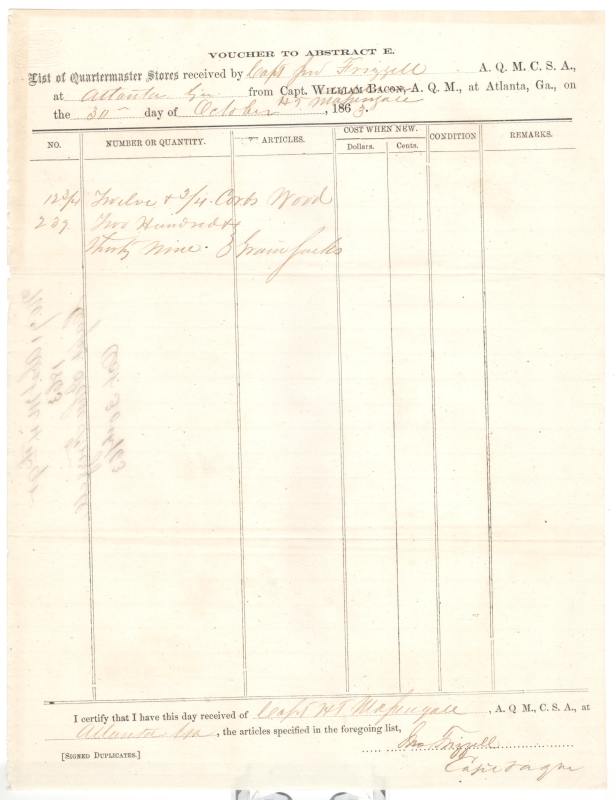 VOUCHER TO ABSTRACT E.
List of Quartermaster Stores received by Capt Jno Frizzell A. Q. M. C. S. A.,
at Atlanta Ga from Capt. WILLIAM BACON, A. Q. M., at Atlanta, Ga., on
H T Massengale
the 30 day of October, 1863.
NO. NUMBER OR QUANTITY. ARTICLES. COST WHEN NEW. CONDITION REMARKS.
Dollars. Cents.
12 3/4 Twelve & 3/4 Cords Wood
239 Two Hundred &
Thirty Nine Grain Sacks
I certify that I have this day received of Capt H T Massengale, A. Q M., C. S. A., at
Atlanta Ga, the articles specified in the foregoing list,
Jno Frizzell
[SIGNED DUPLICATES.] Capt &